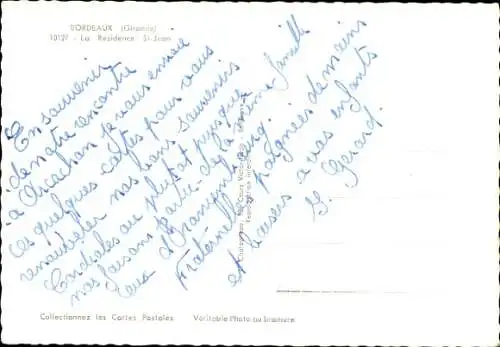 BORDEAUX (Gironde)
10127 - La Résidence St-Jean
En souvenir
de notre rencontre
à Arcachon je vous envoie
ces quelques cartes pour vous
renouveler nos bons souvenirs
Cordiales ou plutôt puisque
nous faisons partie de la même famille
ceux d'Oranienbourg.
Fraternelles poignées de mains
et baisers à vos enfants
G. Gérard.
Collectionnez les Cartes Postales
Véritable Photo au bromure